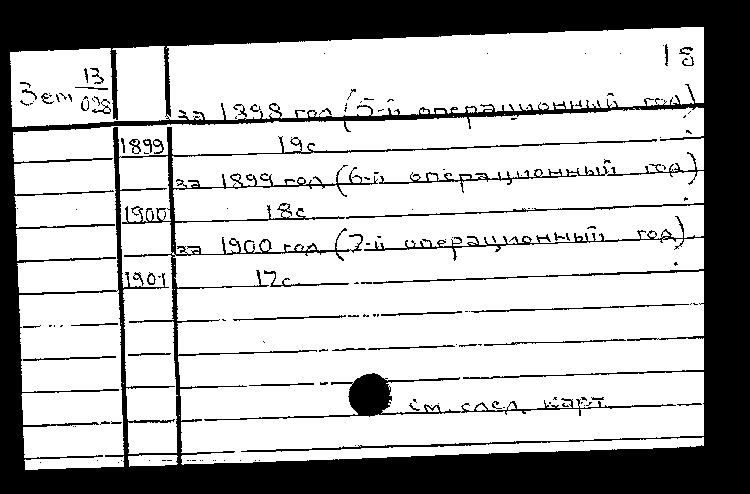 18
Зем 13/028
за 1898 год (5-й операционный год)
1899 19с
за 1899 год (6-й операционный год)
1900 18с
за 1900 год (7-й операционный год)
1901 17с.
см. след. карт.